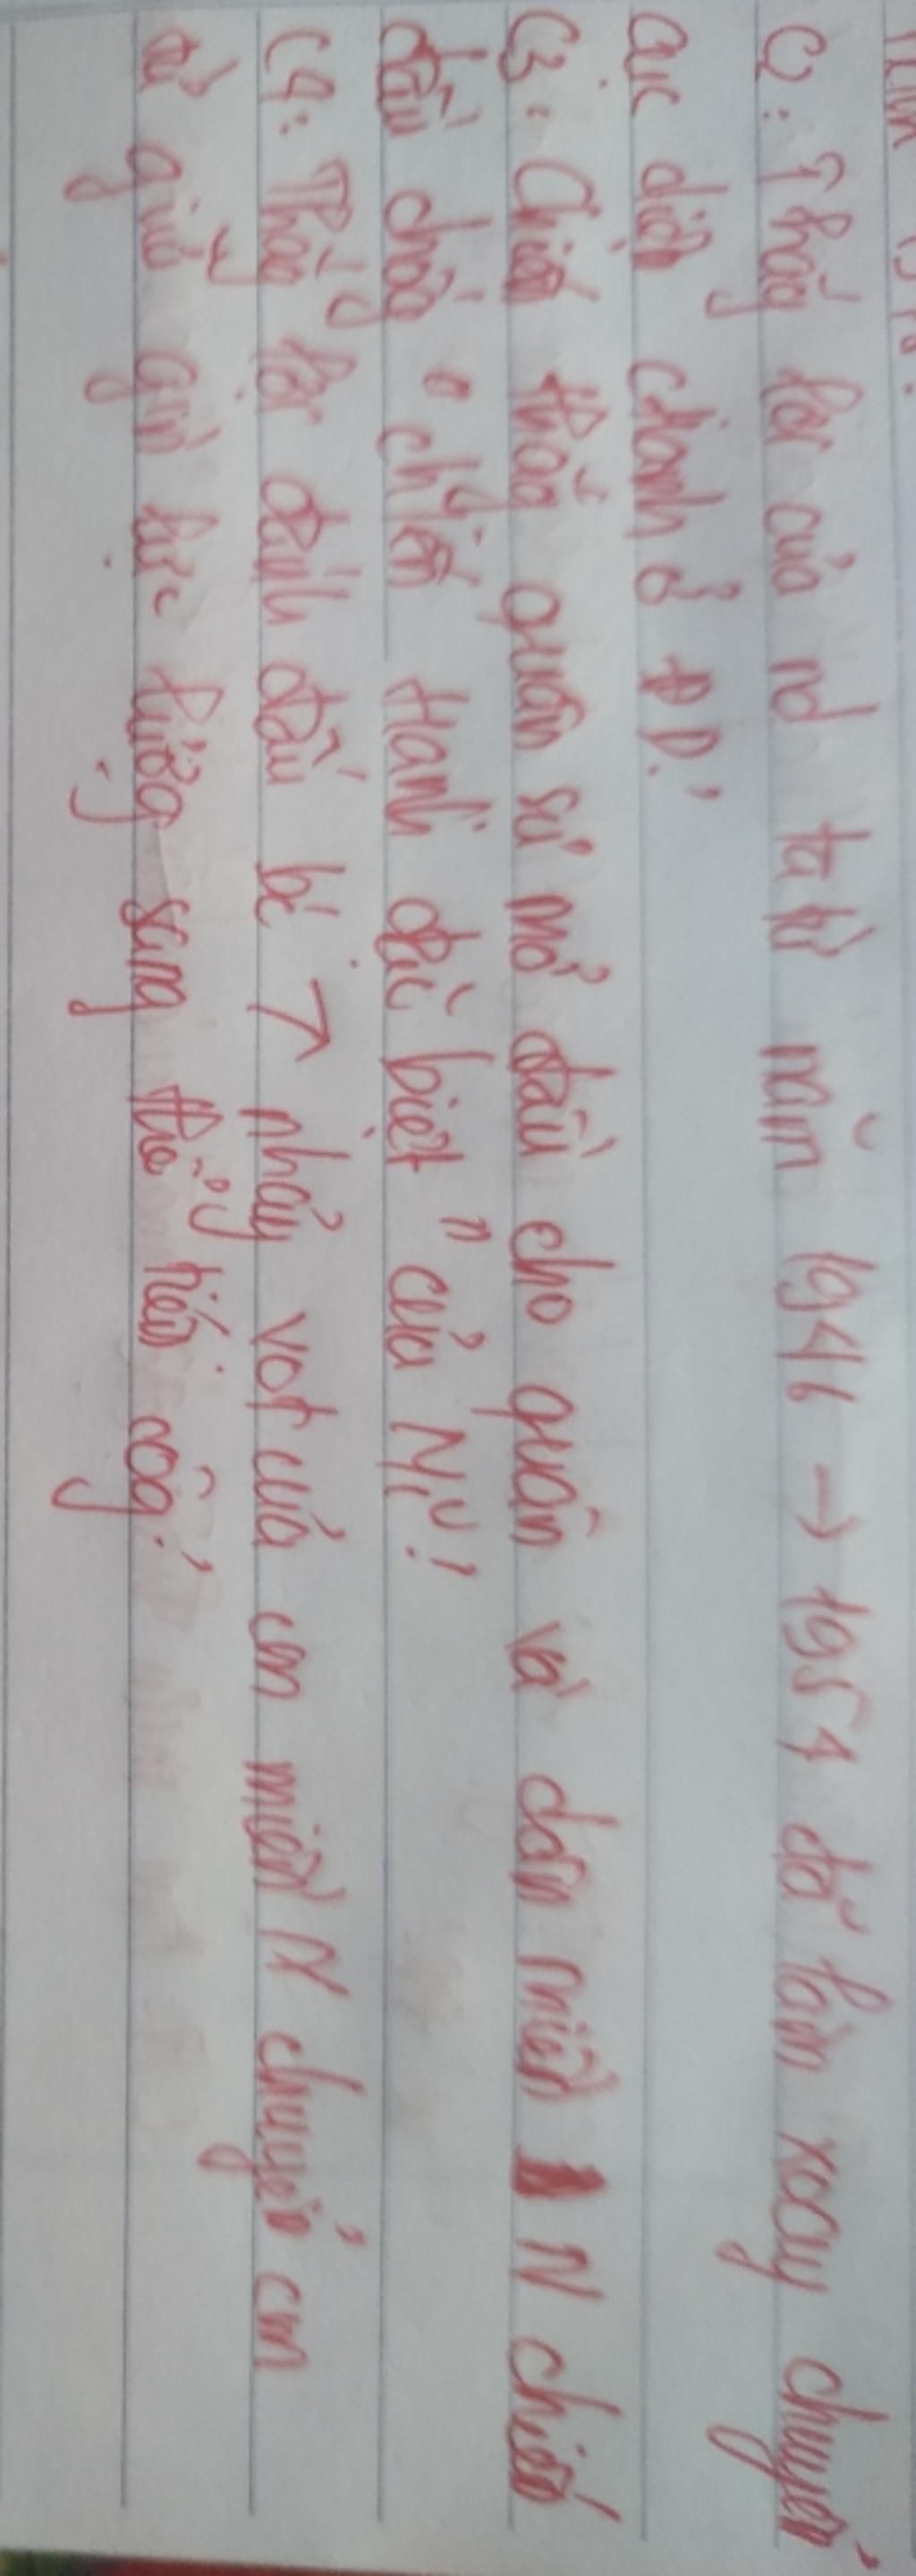 C2: Thắng lợi của nd ta từ năm 1946 → 1954 đã làm xoay chuyển
cục diện ctranh ở ĐD!
C3: Chiến thắng quân sự mở đầu cho quân và dân miền N chiến
đấu chống "chiến tranh đặc biệt" của Mĩ!
C4: Thắng lợi đánh dấu bc ↗ nhảy vọt của cm miền N chuyển cm
từ giữ gìn lực lượng sang thế tiến công!